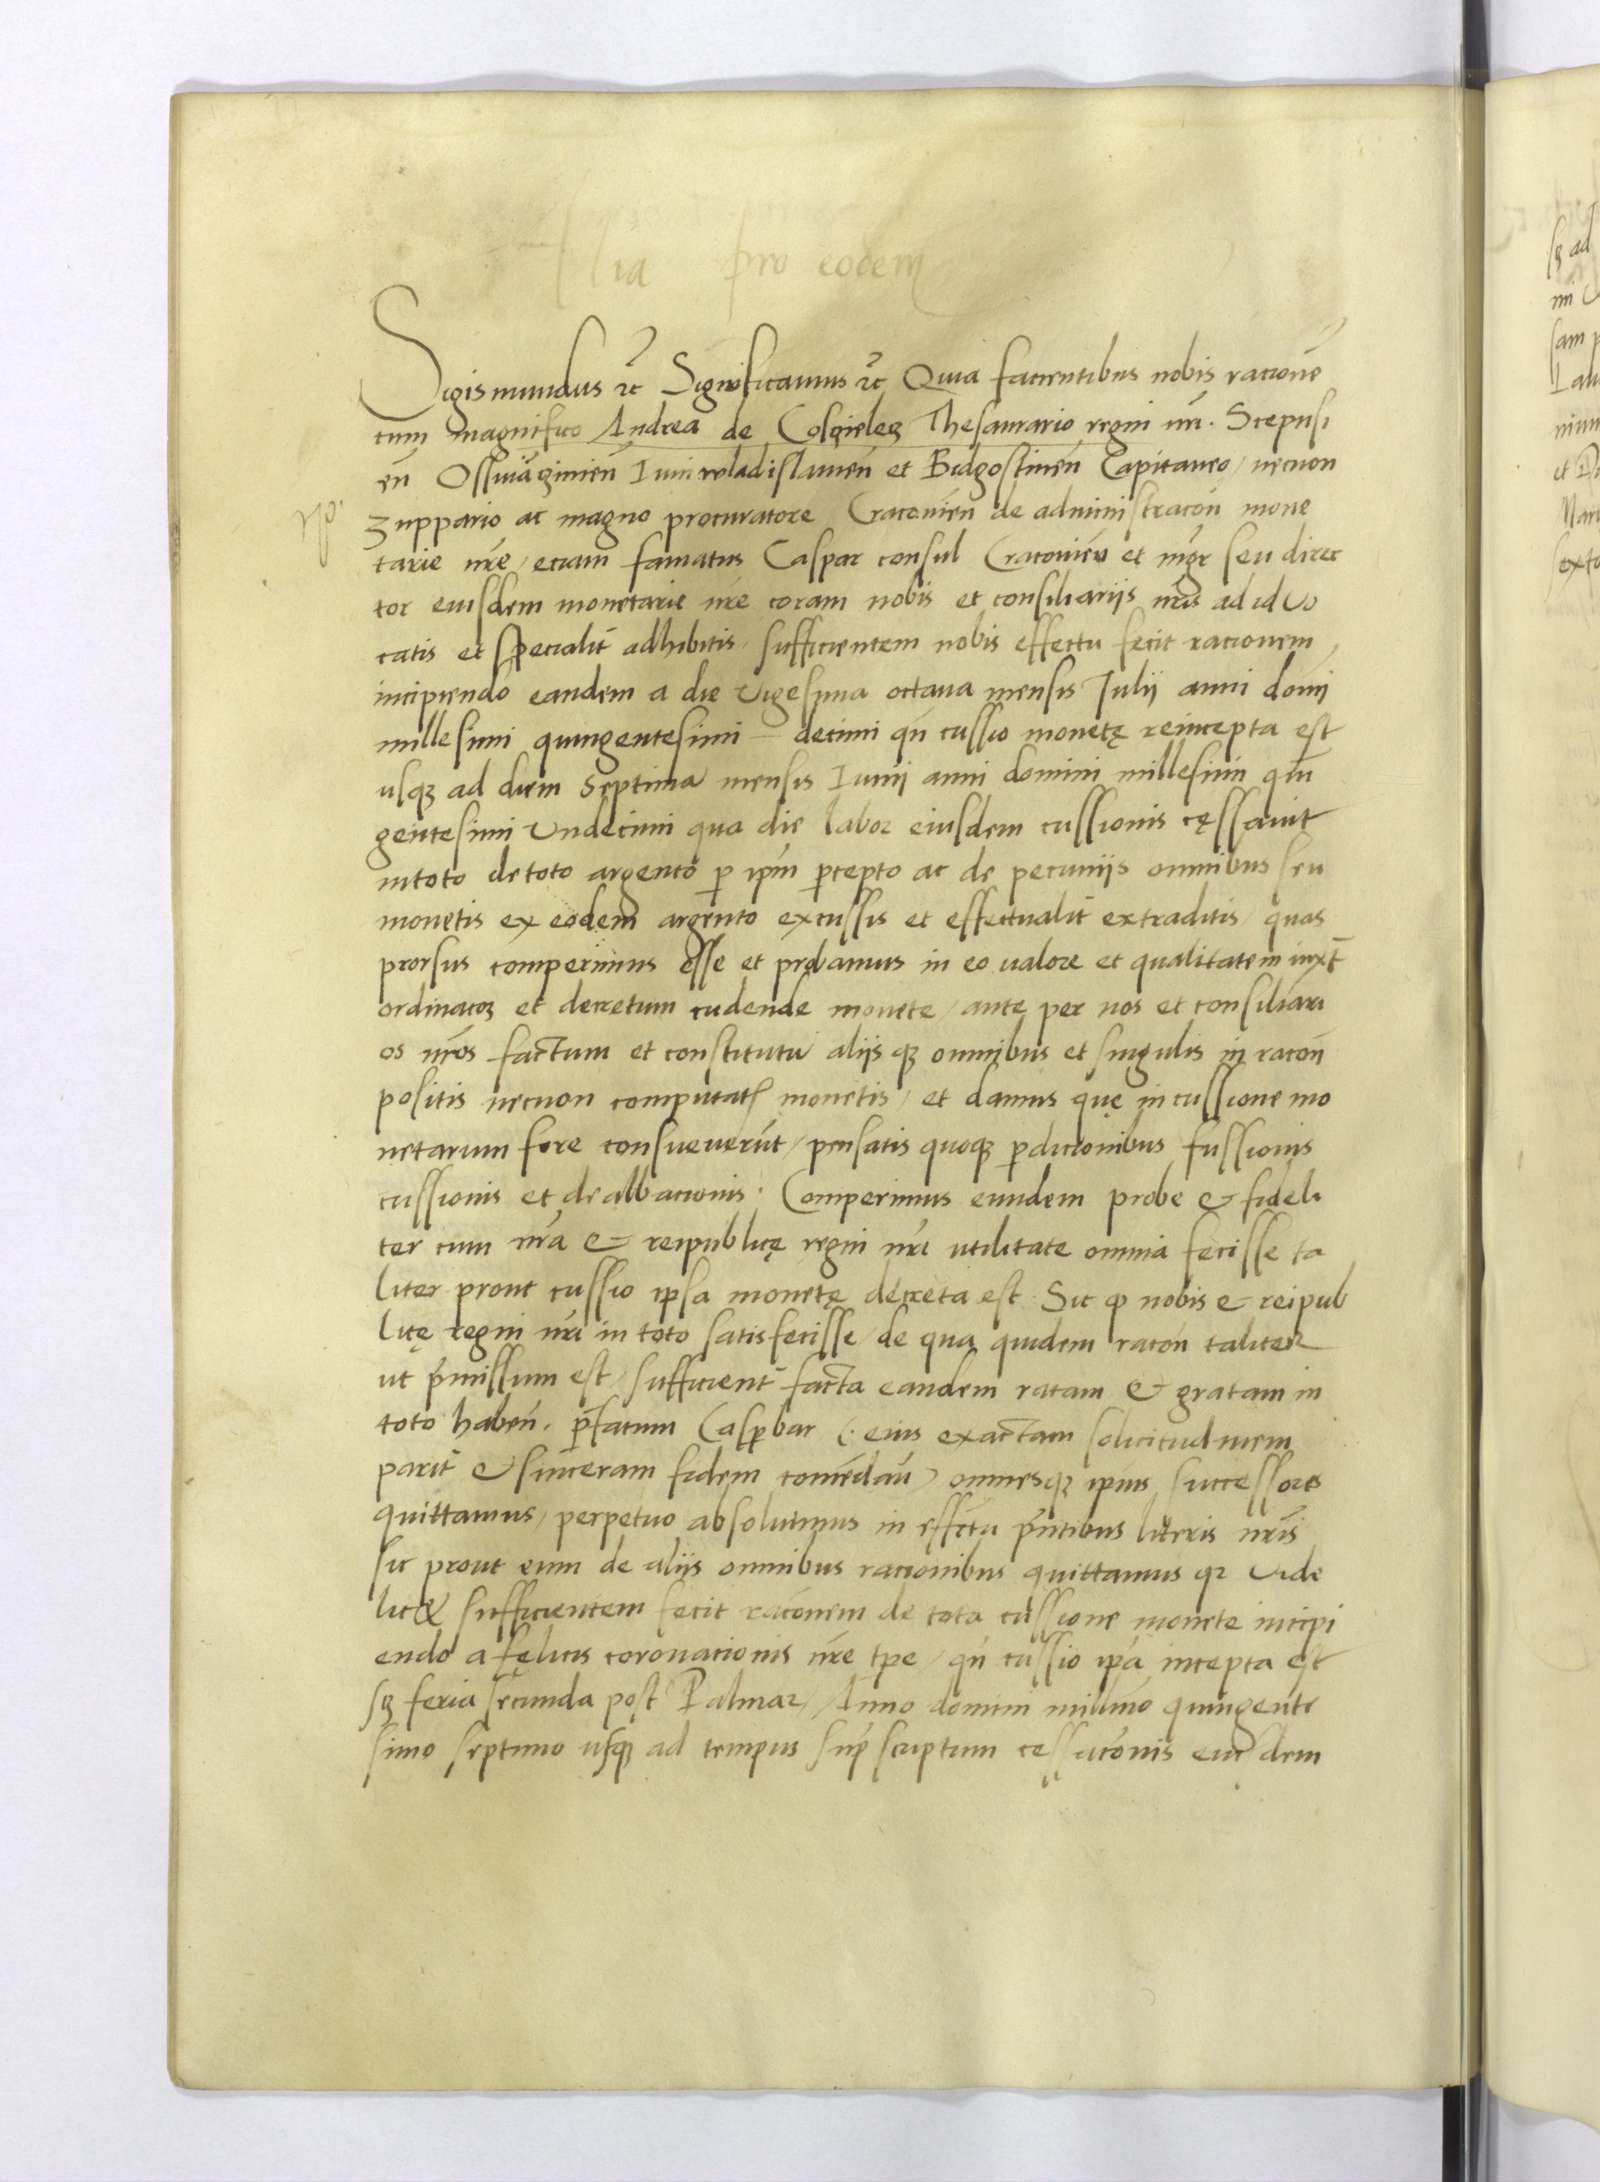 Alia pro eodem
Sigismundus ꝛc Significamus ꝛc Quia facientibus nobis racionē
cum magnifico Andrea de Cosczielecz Thesaurario regni nr̄i. Scepusi
eñ Osswiāgimieñ Iuniwladislauieñ et Bidgostineñ Capitaneo, necnon
zuppario ac magno procuratore Cracouieñ de administracoñ mone
tarie nr̄e, eciam famatus Caspar consul Cracouieñ et mgr̄ seu direc
tor eiusdem monetarie nr̄e coram nobis et consiliariis nr̄is ad id vo
catis et specialit̄ adhibitis, sufficientem nobis effectu fecit racionem
incipiendo eandem a die vigesima octaua mensis Julii anni domi
millesimi quingentesimi decimi qñ cussio monetę reincepta est
usqꝫ ad diem septima mensis Iunii anni domini millesimi quin
gentesimi vndecimi qua die labor eiusdem cussionis cęssauit
in toto de toto argento ꝑ ipm̄ ꝑcepto ac de pecuniis omnibus seu
monetis ex eodem argento excussis et effectualit̄ extraditis, quas
prorsus comperimus esse et probamus in eo ualore et qualitatem iuxt̄
ordinacoꝫ et decretum cudende monete, ante per nos et consiliari
os nr̄os factum et constitutū aliis qꝫ omnibus et singulis in racoñ
positis necnon computatis monetis, et damus quę in cussione mo
netarum fore consueuerūt, pensatis quoqꝫ ꝑdicionibus fussionis
cussionis et dealbacionis. Comperimus eundem probe & fideli
ter cum nr̄a & reipublicę regni nr̄i utilitate omnia fecisse ta
liter prout cussio ipsa monetę decreta est Sic ꝙ nobis & reipub
licę regni nr̄i in toto satisfecisse, de qua quidem racoñ taliter
ut p̄missum est, sufficient̄ facta eandem ratam & gratam in
toto habeñ. p̄fatum Casparum (: eius exactam solicitudinem
parit̄ & sinceram fidem comēdañ) omnesqꝫ ipius successores
quittamus, perpetuo absoluimus in effectu p̄ntibus literis nr̄is
sic prout eum de aliis omnibus racionibus quittamus qꝛ vide
licet sufficientem fecit racōnem de tota cussione monete incipi
endo a fęlicis coronacionis nr̄e tpe, qñ cussio ipā incepta est
sꝫ feria secunda post Palmaꝝ, Anno domini millmo quingente
simo septimo usqꝫ ad tempus sup̄scriptum cęssacōnis eiusdem